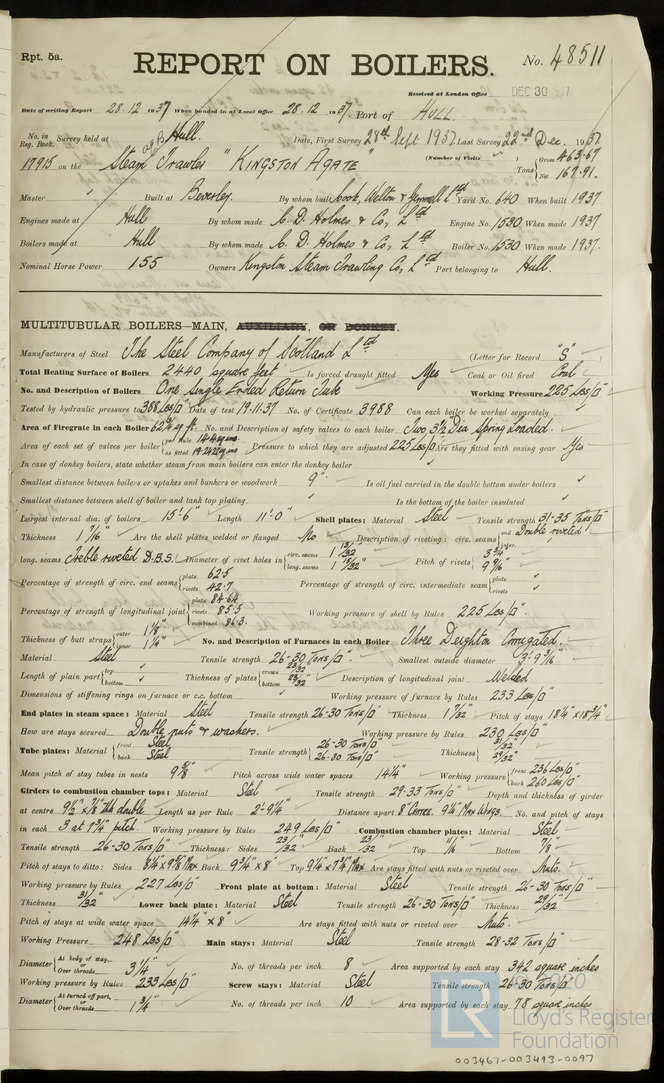 Rpt. 5a.
REPORT ON BOILERS.
No. 48511
Received at London Office DEC 30 1937
Date of writing Report 28.12.1937 When handed in at Local Office 28.12.1937. Port of HULL.
No. in Reg. Book. Survey held at Hull. Date, First Survey 28th Sept 1937. Last Survey 22nd Dec. 1937.
17915 on the Steam Trawler "KINGSTON AGATE" (Number of Visits ) Tons Gross 463.67 Net 167.91.
Master Built at Beverley. By whom built Cook, Welton & Gemmell Ltd Yard No. 640 When built 1937
Engines made at Hull By whom made C. D. Holmes & Co, Ltd Engine No. 1530 When made 1937
Boilers made at Hull By whom made C. D. Holmes & Co, Ltd Boiler No. 1530 When made 1937.
Nominal Horse Power 155 Owners Kingston Steam Trawling Co, Ltd Port belonging to Hull.
MULTITUBULAR BOILERS—MAIN, AUXILIARY, OR DONKEY.
Manufacturers of Steel The Steel Company of Scotland Ltd (Letter for Record "S")
Total Heating Surface of Boilers 2440 square feet Is forced draught fitted Yes Coal or Oil fired Coal
No. and Description of Boilers One Single Ended Return Tube Working Pressure 225 Lbs/□"
Tested by hydraulic pressure to 388 Lbs/□" Date of test 19.11.37 No. of Certificate 3988 Can each boiler be worked separately
Area of Firegrate in each Boiler 62¾ sq ft. No. and Description of safety valves to each boiler Two 3½ Dia Spring Loaded.
Area of each set of valves per boiler per Rule as fitted Pressure to which they are adjusted 225 Lbs/□" Are they fitted with easing gear Yes
In case of donkey boilers, state whether steam from main boilers can enter the donkey boiler
Smallest distance between boilers or uptakes and bunkers or woodwork 9" Is oil fuel carried in the double bottom under boilers
Smallest distance between shell of boiler and tank top plating Is the bottom of the boiler insulated
Largest internal dia. of boilers 15'-6" Length 11'-0" Shell plates: Material Steel Tensile strength 31-35 Tons/□"
Thickness 1 7/16" Are the shell plates welded or flanged No Description of riveting: circ. seams end Double riveted inter.
long. seams Treble riveted D.B.S. Diameter of rivet holes in circ. seams 1 13/32 long. seams 1 13/32" Pitch of rivets 3¾" 9 9/16"
Percentage of strength of circ. end seams plate 62.5 rivets 42.7 Percentage of strength of circ. intermediate seam plate rivets
Percentage of strength of longitudinal joint plate 84.64 rivets 85.5 combined 86.3 Working pressure of shell by Rules 225 Lbs/□"
Thickness of butt straps outer 1⅛" inner 1¼" No. and Description of Furnaces in each Boiler Three Deighton Corrugated.
Material Steel Tensile strength 26-30 Tons/□" Smallest outside diameter 3'-9 3/16"
Length of plain part top bottom Thickness of plates crown bottom Description of longitudinal joint Welded
Dimensions of stiffening rings on furnace or c.c. bottom Working pressure of furnace by Rules 233 Lbs/□"
End plates in steam space: Material Steel Tensile strength 26-30 Tons/□" Thickness 1 7/32" Pitch of stays 18¼" x 18¾"
How are stays secured Double nuts & washers. Working pressure by Rules 230 Lbs/□"
Tube plates: Material front Steel back Steel Tensile strength 26-30 Tons/□" 26-30 Tons/□" Thickness 31/32" 29/32"
Mean pitch of stay tubes in nests 9⅜" Pitch across wide water spaces 14¼" Working pressure front 236 Lbs/□" back 260 Lbs/□"
Girders to combustion chamber tops: Material Steel Tensile strength 29-33 Tons/□" Depth and thickness of girder
at centre 9½" x ⅞" thk double Length as per Rule 2'-9¼" Distance apart 8" Centre. 9⅛ Max Wings. No. and pitch of stays
in each 3 at 7¾" pitch. Working pressure by Rules 249 Lbs/□" Combustion chamber plates: Material Steel
Tensile strength 26-30 Tons/□" Thickness: Sides 23/32 Back 23/32" Top 11/16" Bottom 7/8"
Pitch of stays to ditto: Sides 8¼" x 9⅜ Max Back 9¾" x 8" Top 9¼" x 7¾" Max Are stays fitted with nuts or riveted over Nuts.
Working pressure by Rules 227 Lbs/□" Front plate at bottom: Material Steel Tensile strength 26-30 Tons/□"
Thickness 31/32" Lower back plate: Material Steel Tensile strength 26-30 Tons/□" Thickness 29/32"
Pitch of stays at wide water space 14¼" x 8" Are stays fitted with nuts or riveted over Nuts.
Working Pressure 248 Lbs/□" Main stays: Material Steel Tensile strength 28-32 Tons/□"
Diameter At body of stay, or Over threads 3¼" No. of threads per inch 8 Area supported by each stay 342 square inches
Working pressure by Rules 233 Lbs/□" Screw stays: Material Steel Tensile strength 26-30 Tons/□"
Diameter At turned off part, or Over threads 1¾" No. of threads per inch 10 Area supported by each stay 78 square inches
© 2020
LR
Lloyd's Register
Foundation
003467-003493-0097